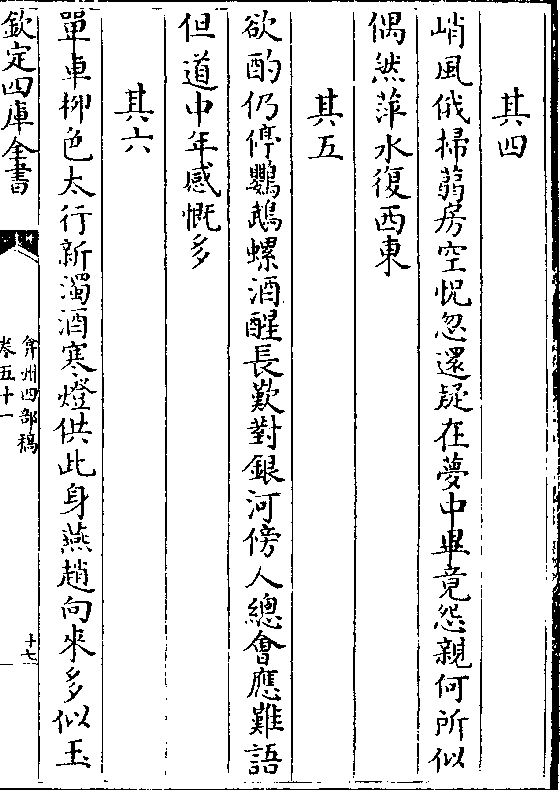 其四
峭風俄掃蒻房空怳忽還疑在夢中畢竟怨親何所似
偶然萍水復西東
其五
欲酌仍停鸚鵡螺酒醒長歎對銀河傍人總會應難語
但道中年感慨多
其六
單車柳色太行新濁酒寒燈供此身燕趙向來多似玉
欽定四庫全書
弇州四部稿
卷五十一
十七